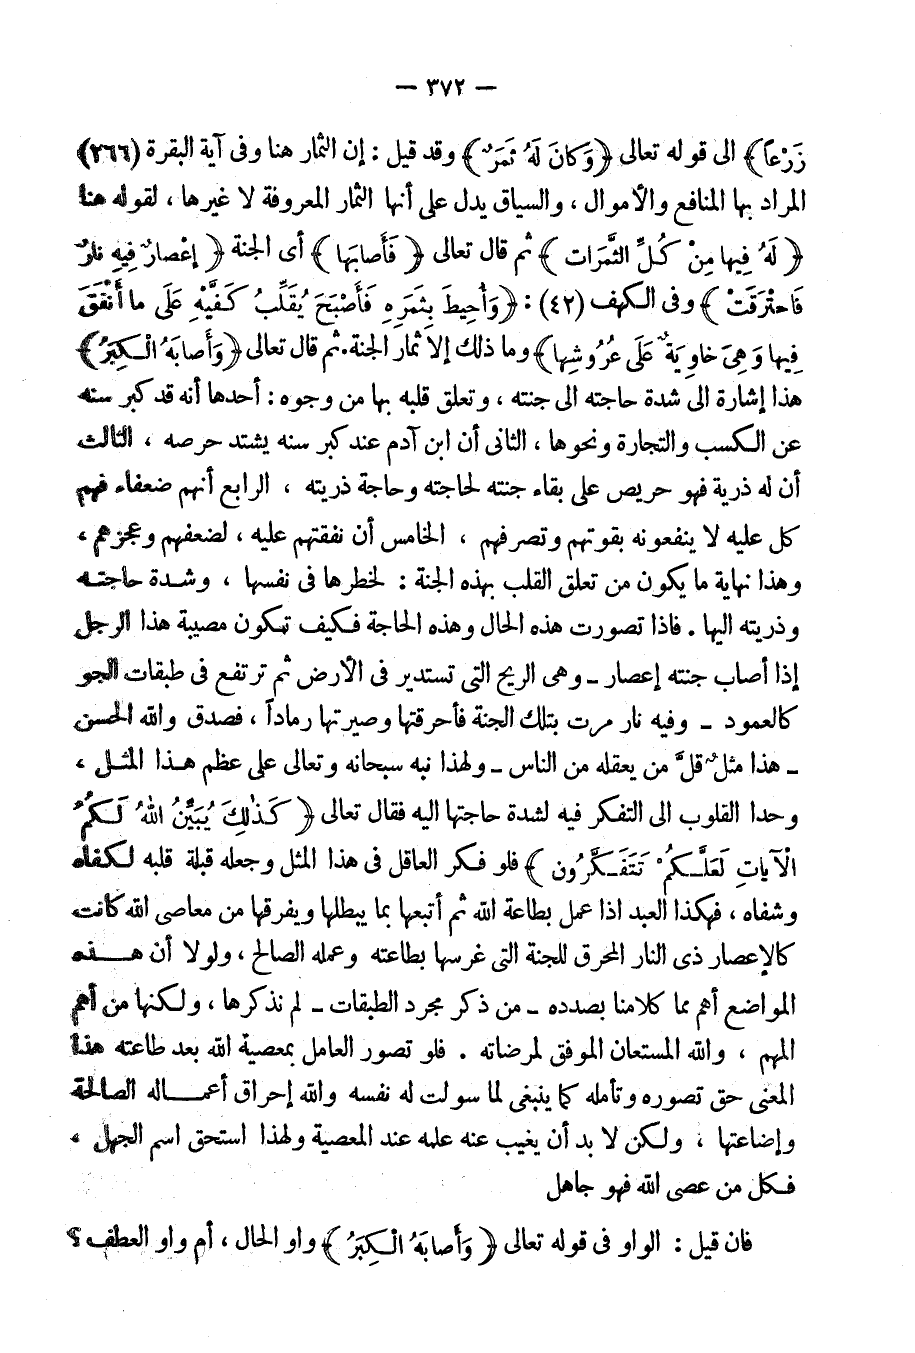 — ٣٧٢ —
زَرْعاً﴾ الى قوله تعالى ﴿وَكانَ لَهُ ثَمَرٌ﴾ وقد قيل : إن الثمار هنا وفى آية البقرة (٢٦٦)
المراد بها المنافع والأموال ، والسياق يدل على أنها الثمار المعروفة لا غيرها ، لقوله هنا
﴿ لَهُ فِيها مِنْ كُلِّ الثَّمَرات ﴾ ثم قال تعالى ﴿ فَأَصابَها ﴾ أى الجنة ﴿ إعْصارٌ فِيهِ نارٌ
فَاحْتَرَقَتْ ﴾ وفى الكهف (٤٢) : ﴿ وَأُحِيطَ بِثَمَرِهِ فَأَصْبَحَ يُقَلِّبُ كَفَّيْهِ عَلَى ما أَنْفَقَ
فِيها وَهِىَ خاوِيَةٌ عَلَى عُرُوشِها﴾ وما ذلك إلا ثمار الجنة. ثم قال تعالى ﴿وَأَصابَهُ الْكِبَرُ﴾
هذا إشارة الى شدة حاجته الى جنته ، وتعلق قلبه بها من وجوه : أحدها أنه قد كبر سنه
عن الكسب والتجارة ونحوها ، الثانى أن ابن آدم عند كبر سنه يشتد حرصه ، الثالث
أن له ذرية فهو حريص على بقاء جنته لحاجته وحاجة ذريته ، الرابع أنهم ضعفاء فهم
كل عليه لا ينفعونه بقوتهم وتصرفهم ، الخامس أن نفقتهم عليه ، لضعفهم وعجزهم ،
وهذا نهاية ما يكون من تعلق القلب بهذه الجنة : لخطرها فى نفسها ، وشدة حاجته
وذريته اليها . فاذا تصورت هذه الحال وهذه الحاجة فكيف تكون مصيبة هذا الرجل
إذا أصاب جنته إعصار ــ وهى الريح التى تستدير فى الأرض ثم ترتفع فى طبقات الجو
كالعمود ــ وفيه نار مرت بتلك الجنة فأحرقتها وصيرتها رماداً ، فصدق والله الحسن
ــ هذا مثلٌ قلَّ من يعقله من الناس ــ ولهذا نبه سبحانه وتعالى على عظم هذا المثل ،
وحدا القلوب الى التفكر فيه لشدة حاجتها اليه فقال تعالى ﴿ كَذٰلِكَ يُبَيِّنُ اللهُ لَكُمُ
الْآياتِ لَعَلَّكُمْ تَتَفَكَّرُون ﴾ فلو فكر العاقل فى هذا المثل وجعله قبلة قلبه لكفاه
وشفاه ، فهكذا العبد اذا عمل بطاعة الله ثم أتبعها بما يبطلها ويفرقها من معاصى الله كانت
كالإعصار ذى النار المحرق للجنة التى غرسها بطاعته وعمله الصالح ، ولولا أن هذه
المواضع أهم مما كلامنا بصدده ــ من ذكر مجرد الطبقات ــ لم نذكرها ، ولكنها من أهم
المهم ، والله المستعان الموفق لمرضاته . فلو تصور العامل بمعصية الله بعد طاعته هذا
المعنى حق تصوره وتأمله كما ينبغى لما سولت له نفسه والله إحراق أعماله الصالحة
وإضاعتها ، ولكن لا بد أن يغيب عنه علمه عند المعصية ولهذا استحق اسم الجهل ،
فكل من عصى الله فهو جاهل
فان قيل : الواو فى قوله تعالى ﴿ وَأَصابَهُ الْكِبَرُ ﴾ واو الحال ، أم واو العطف ؟